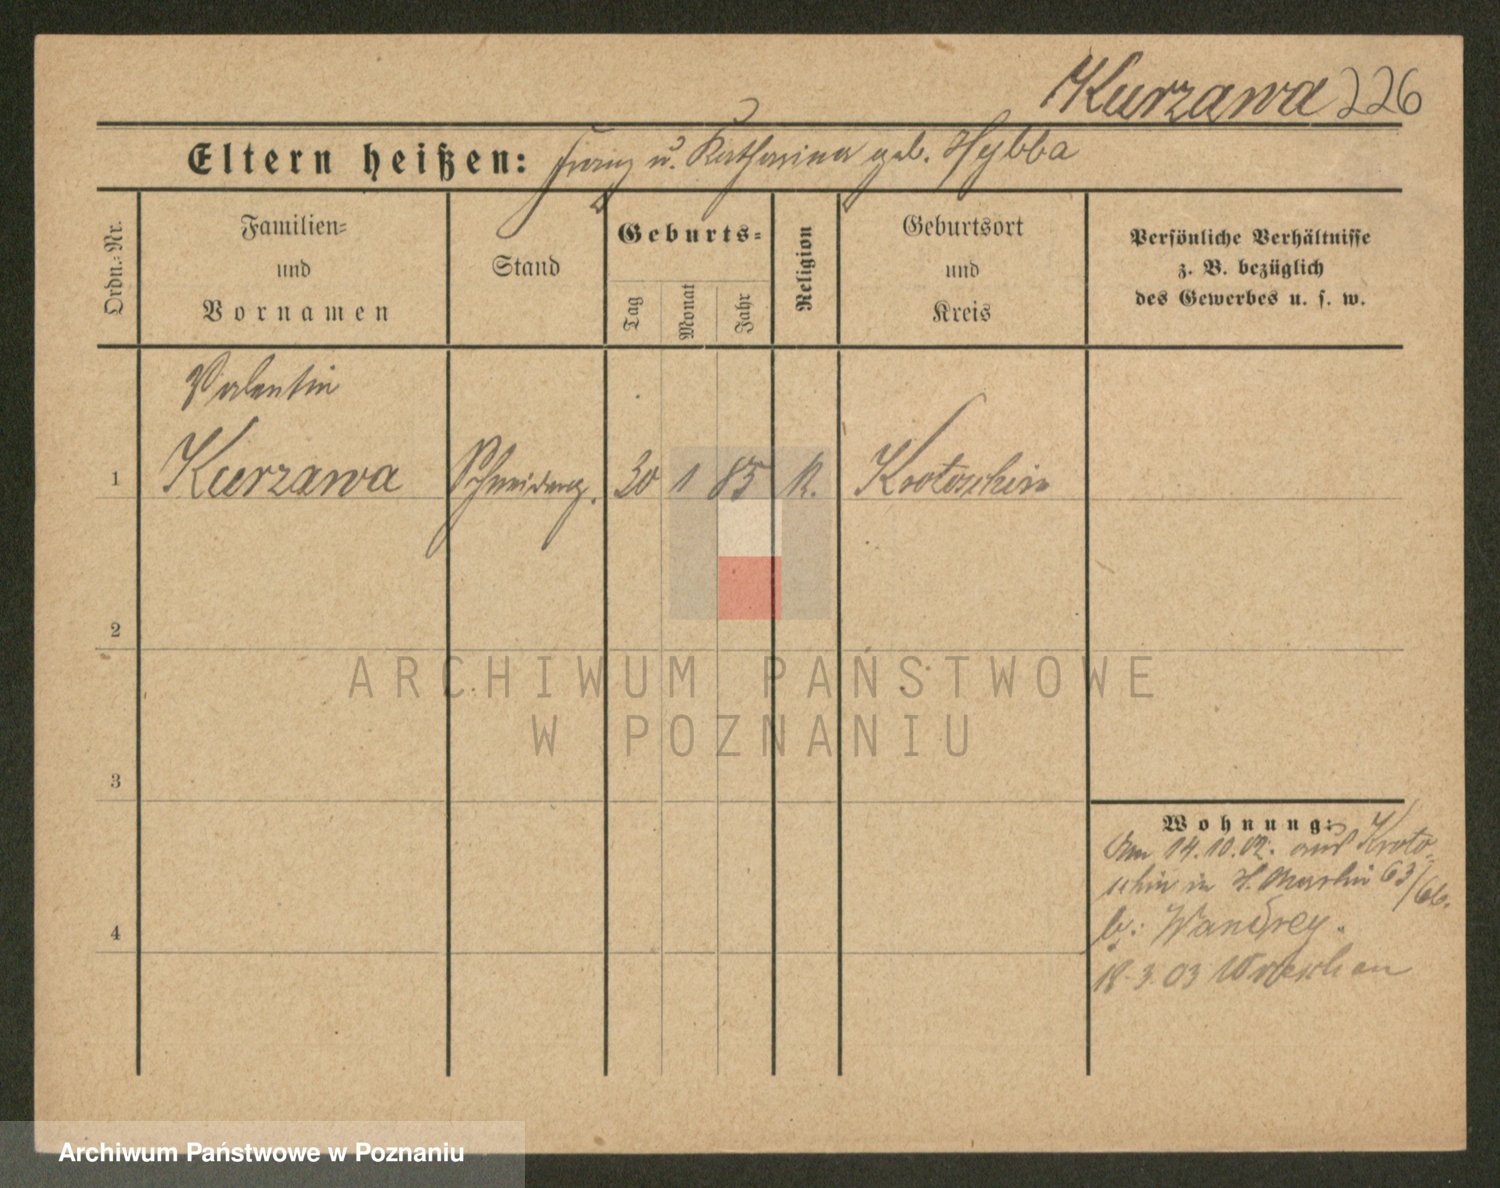 Kurzawa 226
Eltern heißen: Franz u. Katharina geb. Hybba
Ordn.-Nr.
Familien-
und
Vornamen
Stand
Geburts-
Tag
Monat
Jahr
Religion
Geburtsort
und
Kreis
Persönliche Verhältnisse
z. B. bezüglich
des Gewerbes u. s. w.
Valentin
1 Kurzawa Schneiderg. 30 1 85 K. Krotoschin
2
3
4
Wohnung:
Am 14.10.02. aus Kroto-
schin in St. Martin 63/
b: Wandrey.
18.3.03 Wreschen
ARCHIWUM PAŃSTWOWE
W POZNANIU
Archiwum Państwowe w Poznaniu